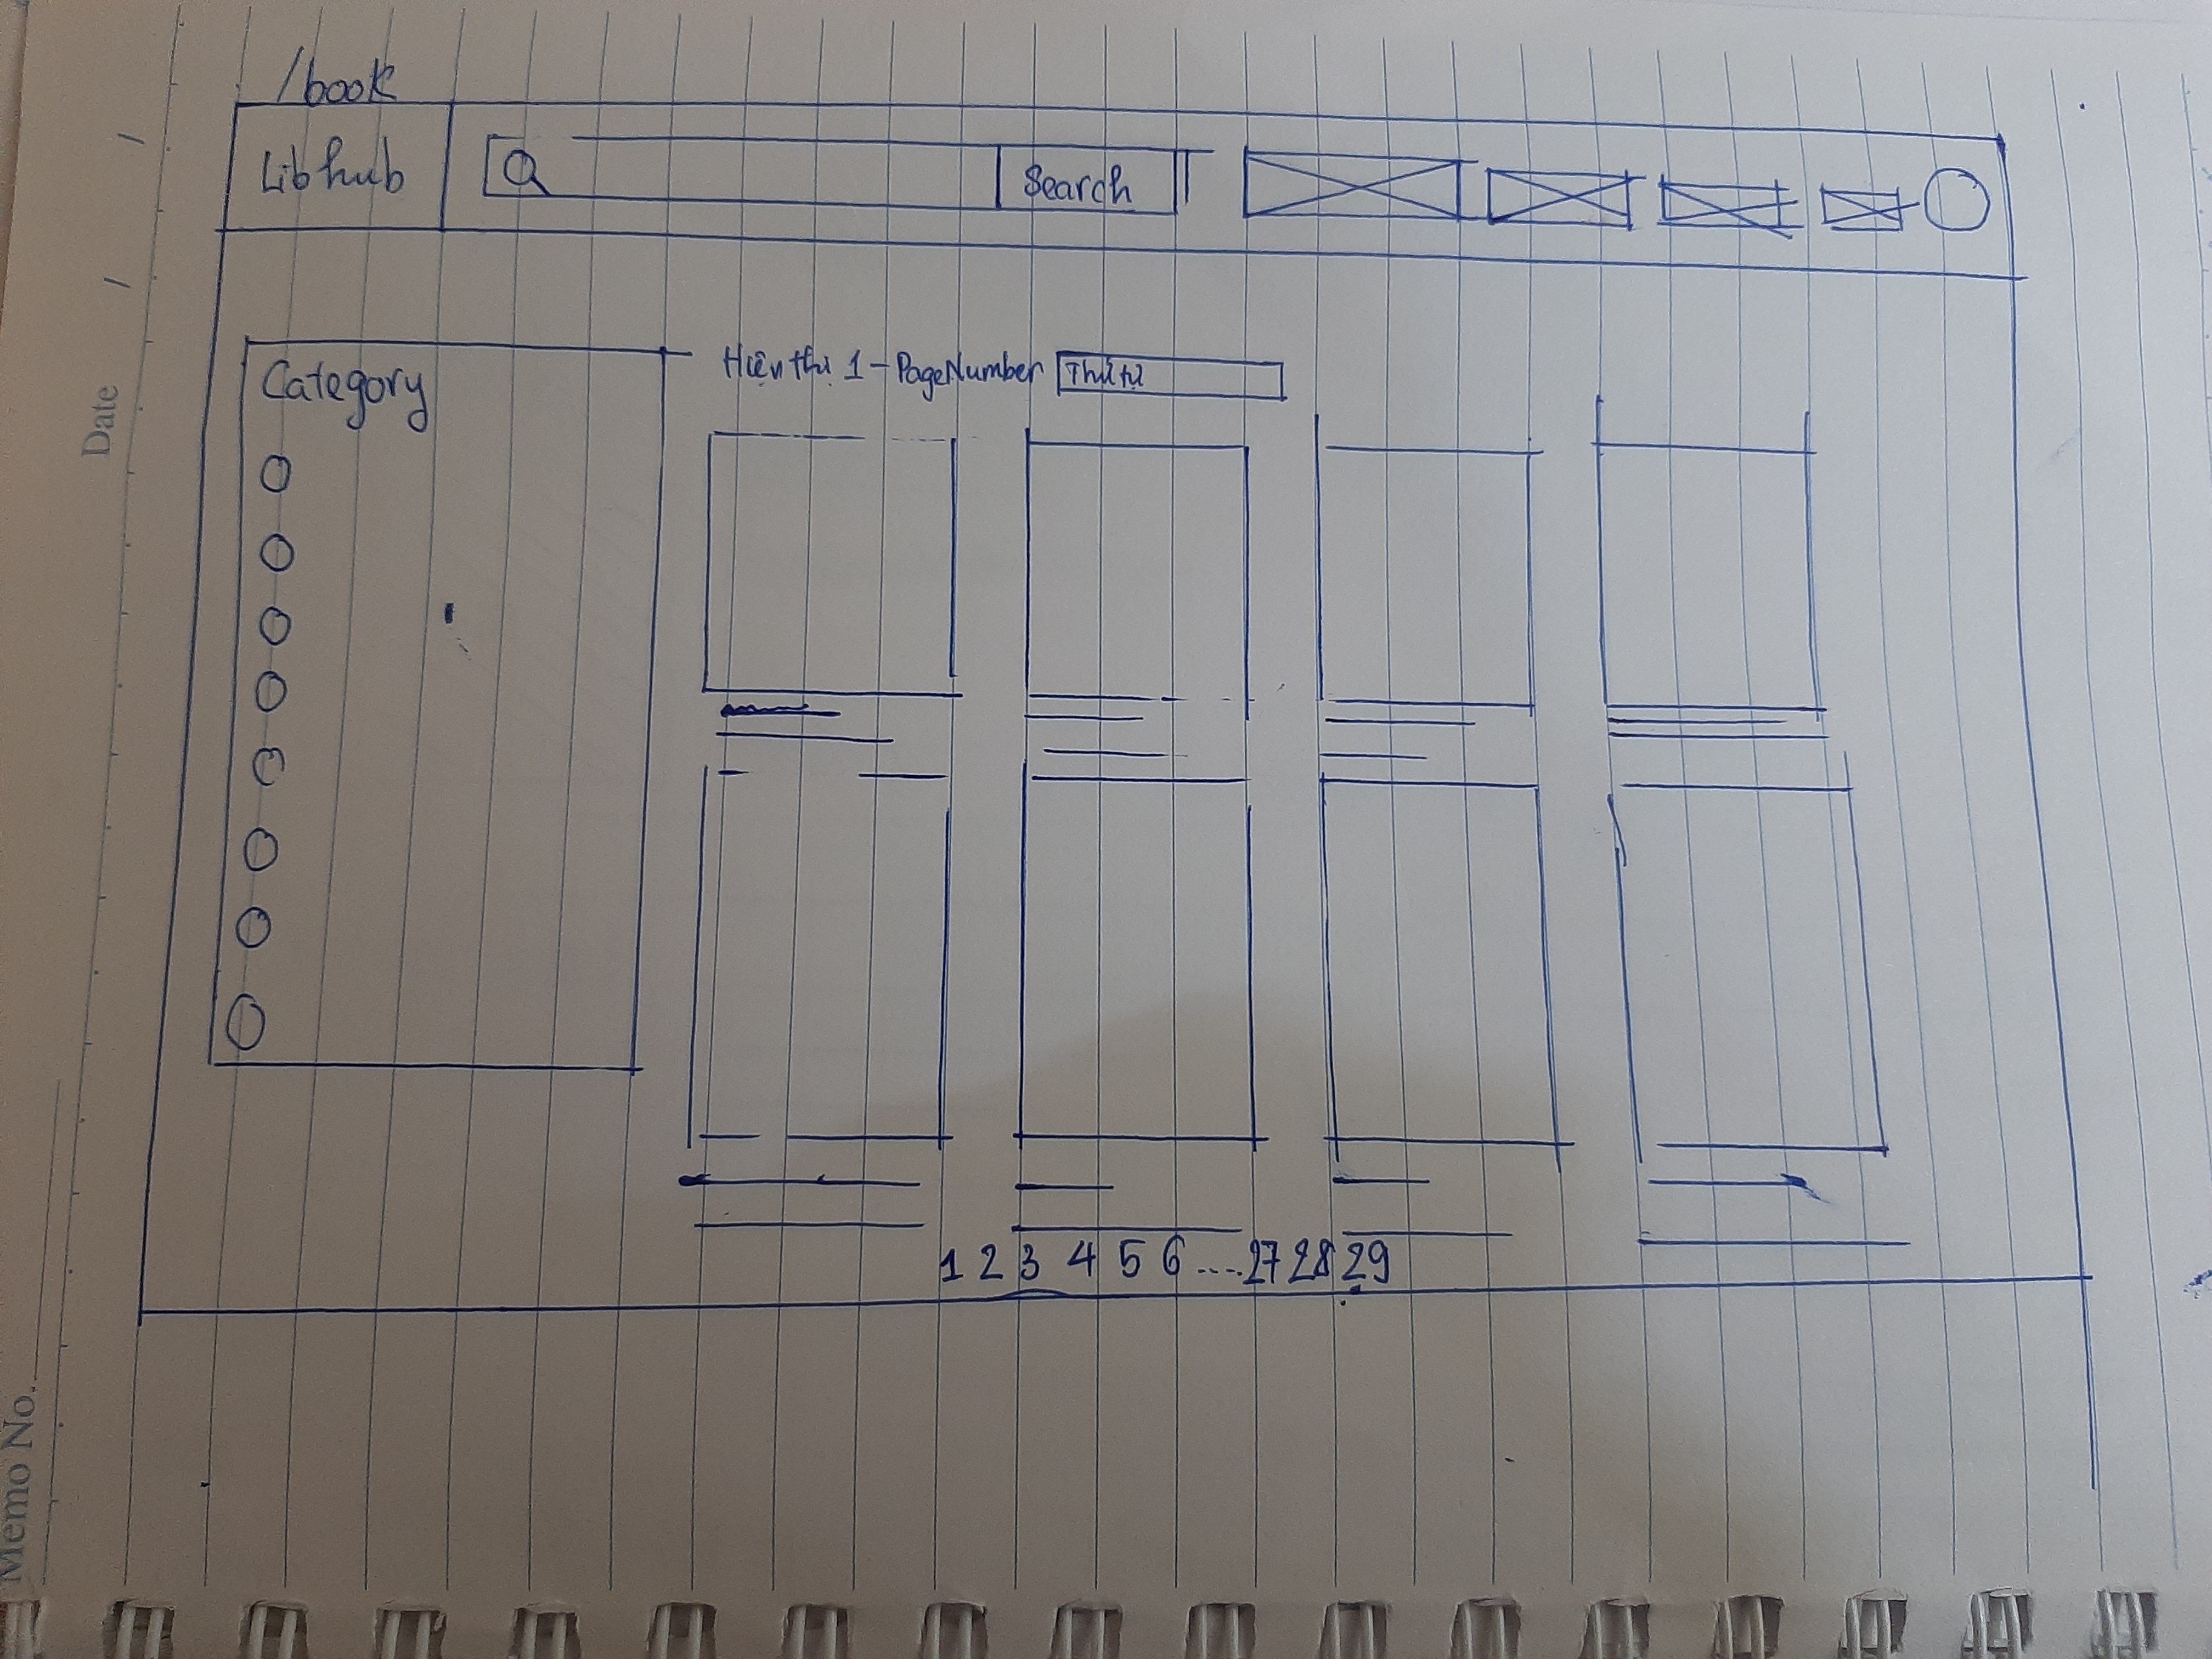 Memo No.
Date / /
/book
Libhub
Search
Category
Hiện thị 1 - PageNumber
Thứ tự
1 2 3 4 5 6 .... 27 28 29